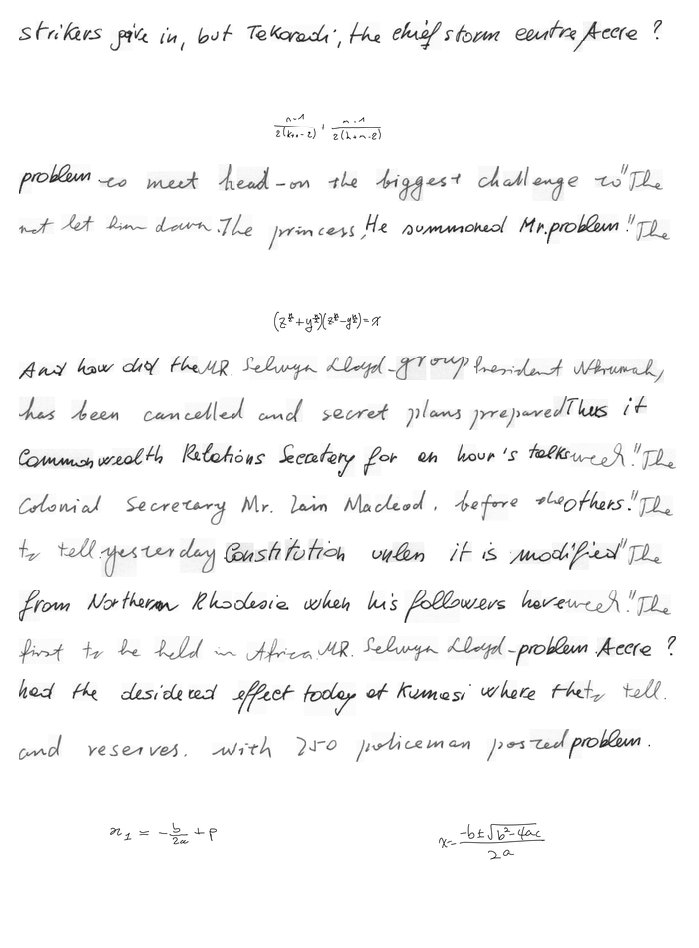 strikers give in, but Tekoradi, the chief storm centre Accra ?
\frac{n-1}{2(k+n-2)} , \frac{n-1}{2(h+n-2)}
problem to meet head-on the biggest challenge to "The
not let him down. The princess, He summoned Mr. problem." The
(z^{\frac{x}{2}}+y^{\frac{x}{2}})(z^{\frac{x}{2}}-y^{\frac{x}{2}})=x
And how did the MR. Selwyn Lloyd-group President Nkrumah,
has been cancelled and secret plans prepared Thus it
Commonwealth Relations Secretary for an hour's talks week." The
Colonial Secretary Mr. Iain Macleod, before the others." The
to tell. yesterday Constitution unless it is modified "The
from Northern Rhodesia when his followers have week." The
first to be held in Africa. MR. Selwyn Lloyd-problem Accra ?
had the desidered effect today at Kumasi where the to tell.
and reserves. with 250 policeman posted problem.
x_1 = -\frac{b}{2a} + p x=\frac{-b±\sqrt{b^2-4ac}}{2a}